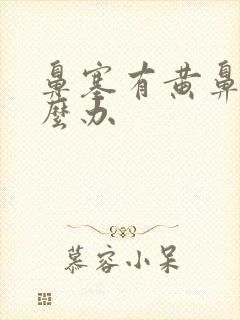 鼻塞有黄鼻
麼办
慕容小呆